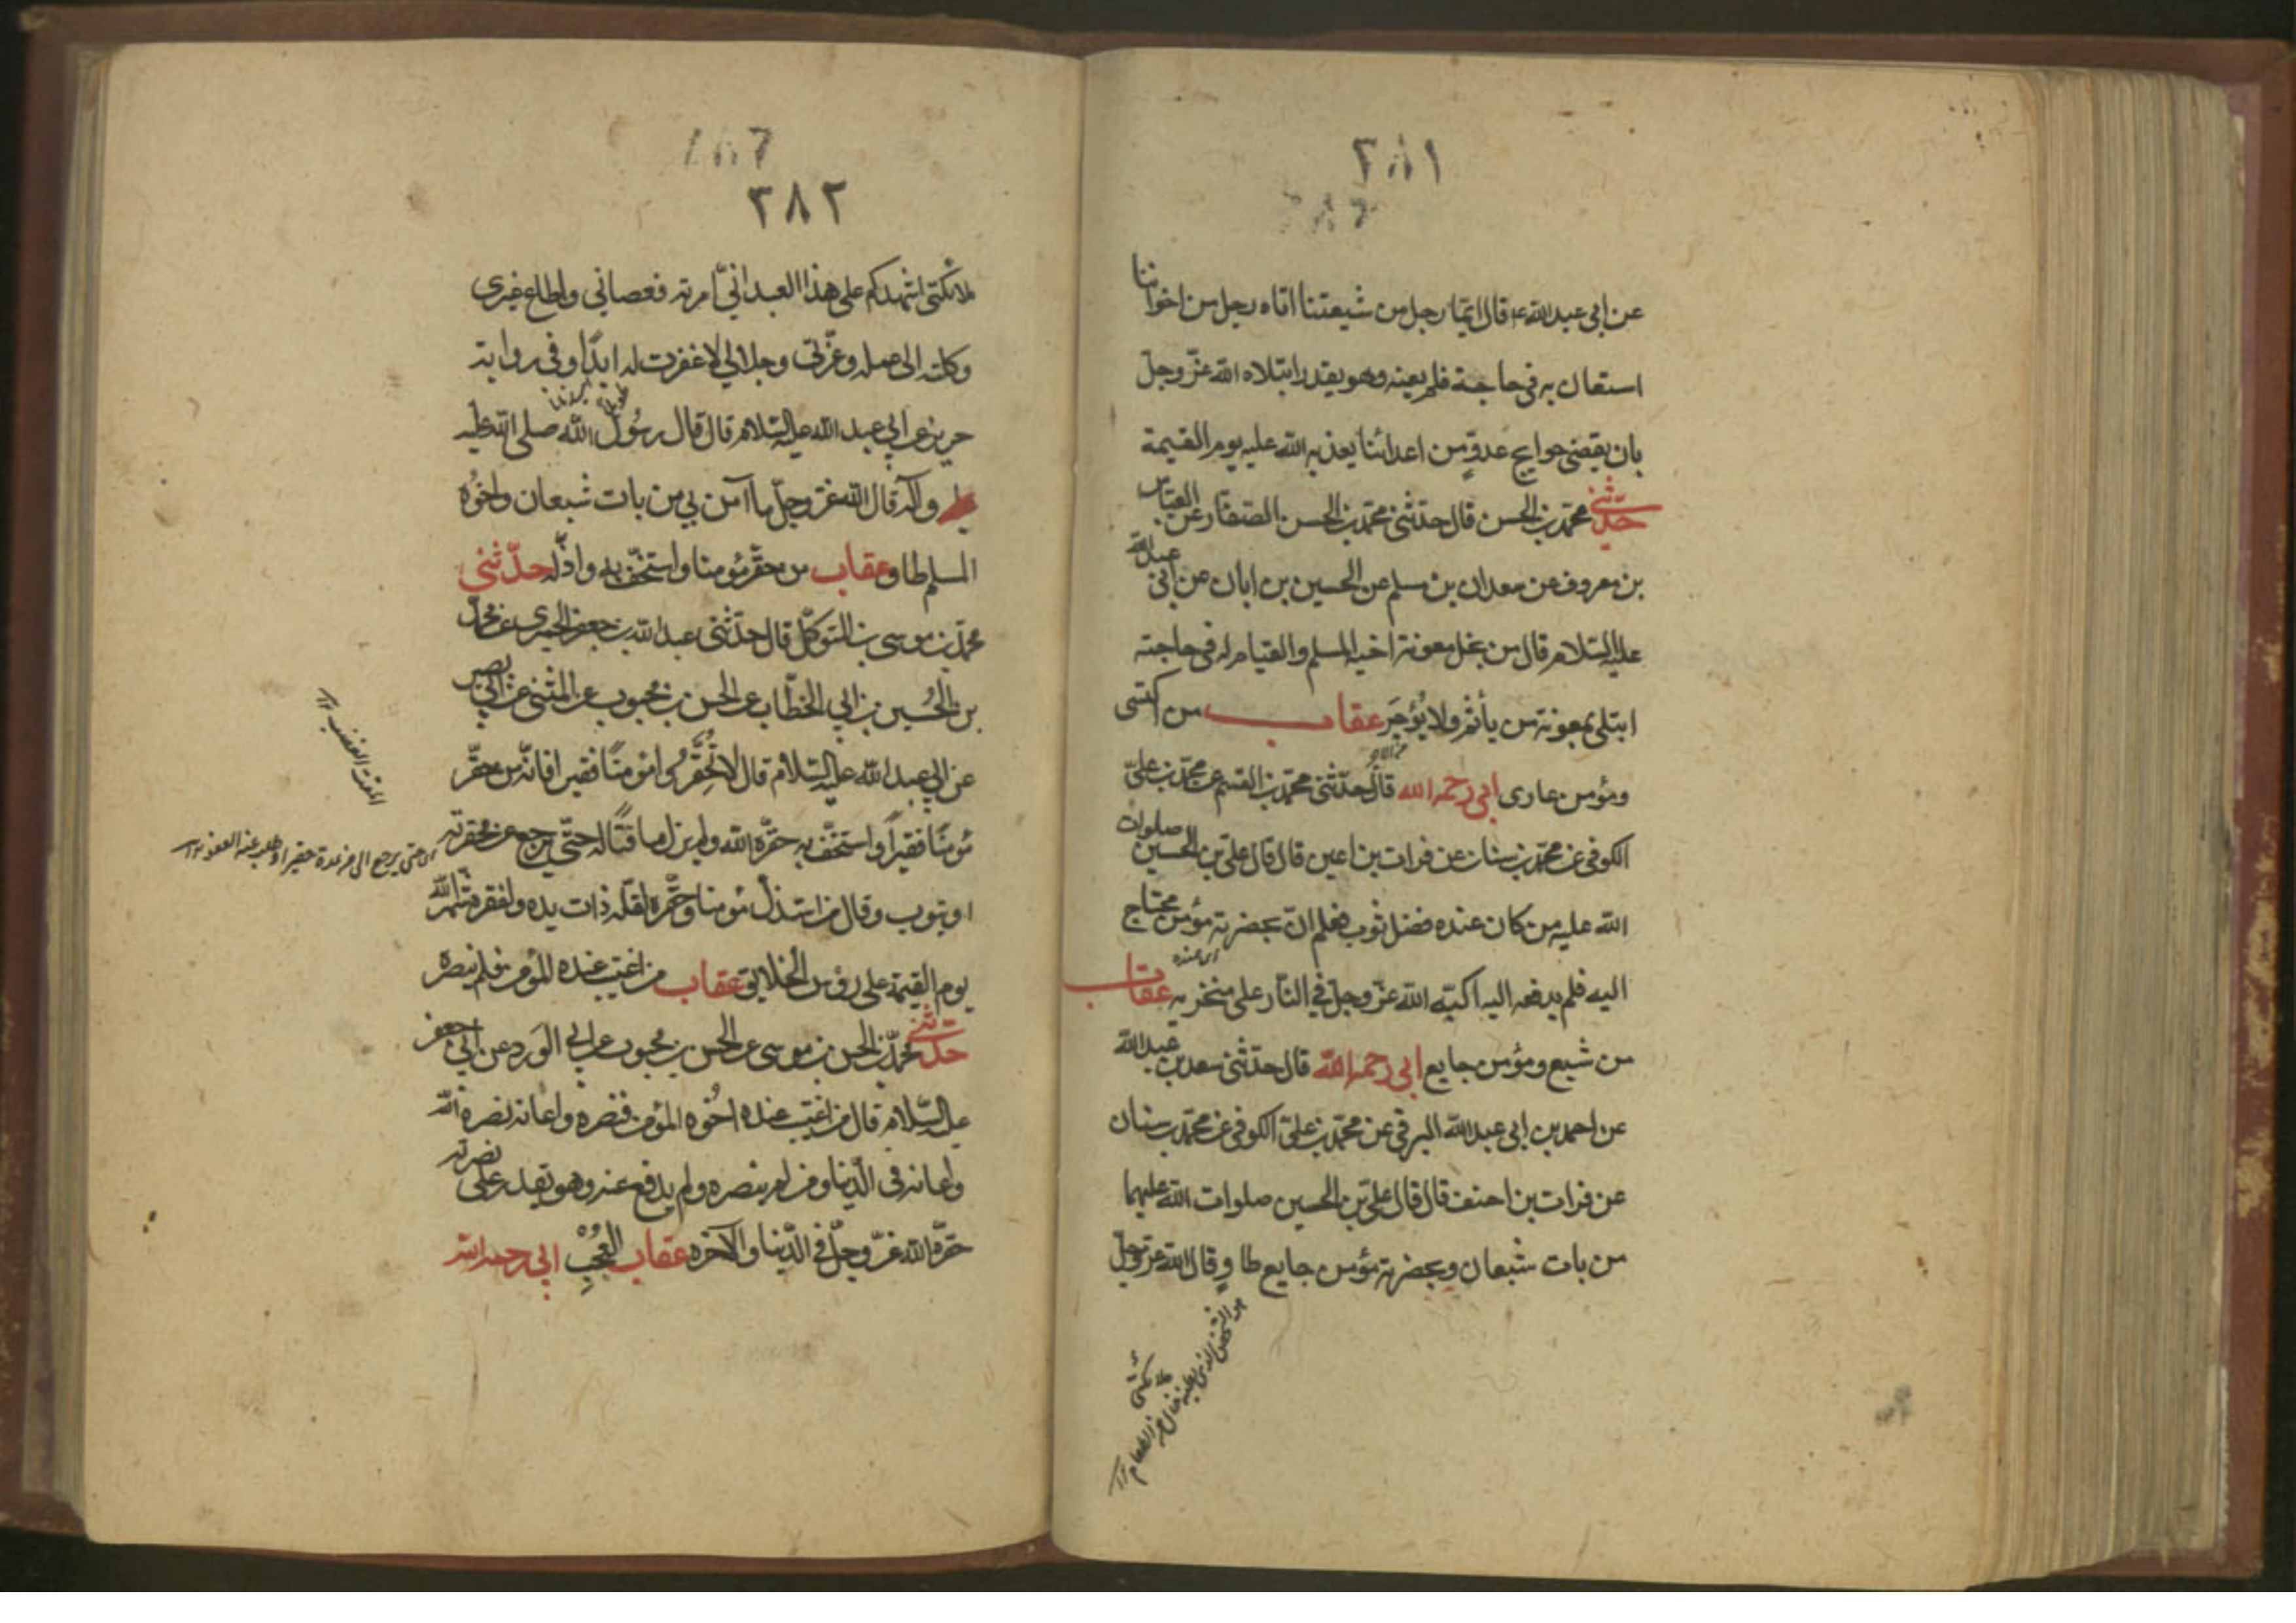 ٢٨١
عن ابي عبد الله ع قال ايّما رجل من شيعتنا اتاه رجل من اخواننا
استعان به في حاجة فلم يعنه وهو يقدر ابتلاه الله عزّ وجلّ
بان يقضي حوايج عدوّ من اعدائنا يعذبه الله عليه يوم القيمة
حدّثني محمّد بن الحسن قال حدّثني محمّد بن الحسن الصفّار عن العبّاس
بن معروف عن سعدان بن مسلم عن الحسين بن ابان عن ابي عبد الله
عليه السلام قال من بخل معونة اخيه المسلم والقيام له في حاجته
ابتلي بمعونة من يأثم ولا يُؤجَر عقاب من اكتسى
ومؤمن عارى ابي رحمه الله قال حدّثني محمّد بن القسم عن محمّد بن عليّ
الكوفي عن محمّد بن سنان عن فرات بن اعين قال قال عليّ بن الحسين صلوات
الله عليه من كان عنده فضل ثوب فعلم انّ بحضرته مؤمن محتاج
اى عنده
اليه فلم يدفعه اليه اكبّه الله عزّ وجلّ في النّار على منخريه عقاب
من شبع ومؤمن جايع ابي رحمه الله قال حدّثني سعد بن عبد الله
عن احمد بن ابي عبد الله البرقي عن محمّد بن عليّ الكوفي عن محمّد بن سنان
عن فرات بن احنف قال قال عليّ بن الحسين صلوات الله عليهما
من بات شبعان وبحضرته مؤمن جايع طاوٍ قال الله عزّ وجلّ
ملائكتي
٢٨٢
ملائكتي اشهدكم على هذا العبد انّي امرته فعصاني واطاع غيري
وكلته الى عمله وعزّتي وجلالي لا غفرت له ابدًا وفي رواية
حريز عن ابي عبد الله عليه السّلام قال قال رسُول الله صلى الله عليه
وآله قال الله عزّ وجلّ ما آمن بي من بات شبعان واخُوه
المسلم طاو عقاب من حقّر مؤمنا واستخفّ به واذلّه حدّثني
محمّد بن موسى بن المتوكّل قال حدّثني عبد الله بن جعفر الحميري عن محمّد
بن الحُسين بن ابي الخطّاب عن الحسن بن محبوب عن المثنى عن ابي بصير
عن ابي عبد الله عليه السّلام قال لا تُحَقِّرُوا مؤمنًا فقيرا فانّه من حقّر
مؤمنًا فقيرًا واستخفّ به حقّره الله ولم يزل ماقتًا له حتّى يرجع عن محقرته
او يتوب وقال من استذلّ مؤمنا وحقّره لقلّة ذات يده ولفقره شهّره الله
يوم القيمة على رؤس الخلايق عقاب من اغتيب عنده المؤمن فلم ينصره
حدّثني محمّد بن الحسن بن موسى عن الحسن بن محبوب عن ابي الوَرد عن ابي جعفر
عليه السّلام قال من اغتيب عنده اخُوه المؤمن فنصره واعانه نصره الله
واعانه في الدّنيا ومن لم ينصره ولم يدفع عنه وهو يقدر على نصرته
حقّره الله عزّ وجلّ في الدّنيا والآخره عقاب العُجُبِ ابي رحمه الله
المقت الغضب
اى حتى يرجع الى